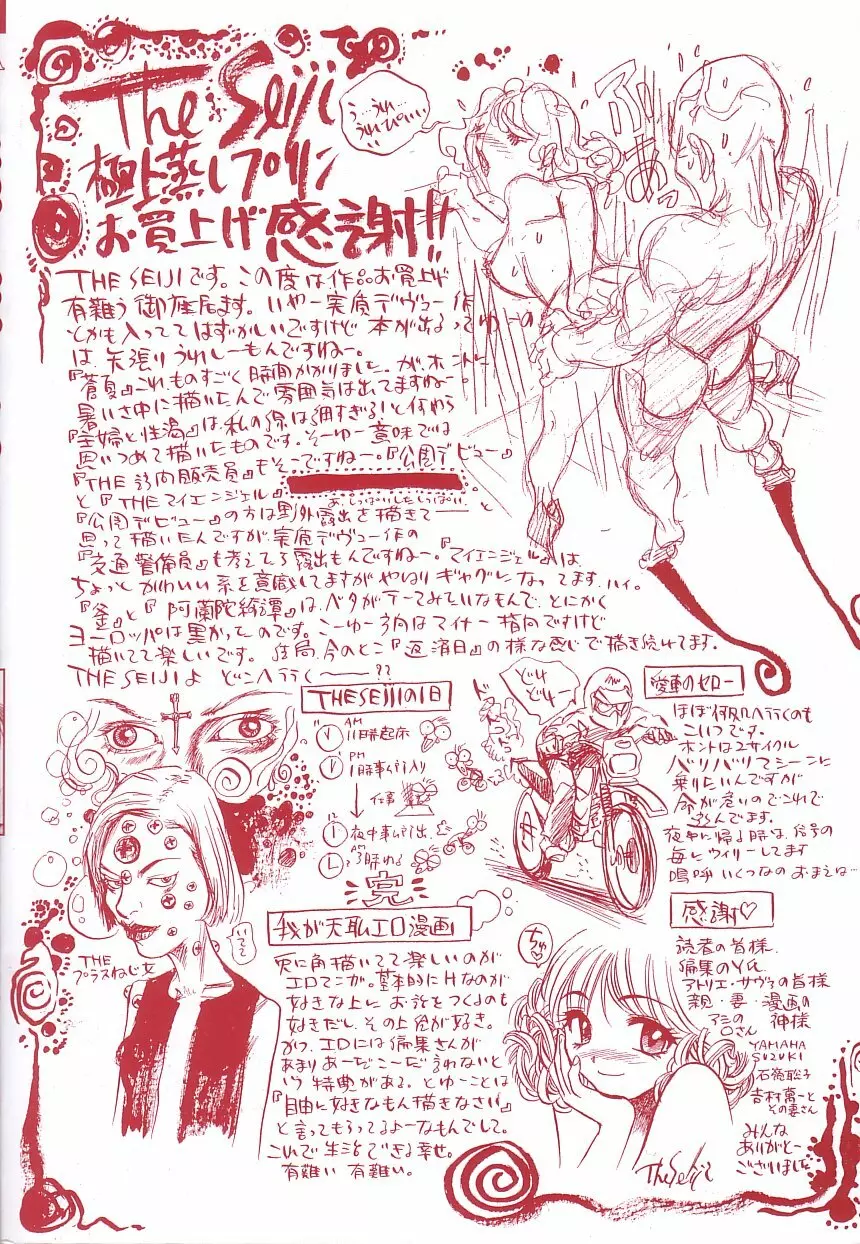 The Seiji
極上蒸しプリン
お買上げ感謝!!
う…うれ…
うれぴい…
ふあっ
THE SEIJIです。この度は作品お買上げ
有難う御座居ます。いやー実底デヴュー作
とかも入っててはずかしいですけど本が出るってゆーの
は矢張りうれしーもんですねー。
『蒼夏』これものすごく時間かかりました。が、ホントに
暑いさ中に描いたんで雰囲気は出てますねー。
『主婦と性渇』は、私の線は細すぎる!と何やら
思いつめて描いたものです。そーゆー意味では
『THE 訪問販売員』もそーですねー。『公園デビュー』
と『THEマイエンジェル』
あ、しっぱいしたしっぱい
『公園デビュー』の方は野外露出を描きて――と
思って描いたんですが、実底デヴュー作の
『交通警備員』も考えてみりゃ露出もんですねー。『マイエンジェル』は
ちょっとかわいい系を意識してますがやはりギャグになってます、ハイ。
『釜』と『阿蘭陀綺譚』は、ベタがテーマみたいなもんで、とにかく
ヨーロッパは黒かったのです。こーゆー方向はマイナー指向ですけど
描いてて楽しいです。結局、今のとこ『返済日』の様な感じで描き続けてます。
THE SEIJIよ どこへ行く――??
THE SEIJIの1日
AM
11時起床
PM
1時事ム所入り
仕事
夜中事ム所出、
AM
3時ねる
完
ドドドド
どけ
どけー
愛車のセロー
ほぼ何処へ行くのも
こいつです。
ホントは2サイクル
バリバリマシーンに
乗りたいんですが
命が危いのでこれで
遊んでます。
夜中に帰る時は、信号の
毎にウィリーしてます
嗚呼いくつなのおまえは…
いてて
THE
プラスねじ女
我が天恥エロ漫画
兎に角描いてて楽しいのが
エロマンガ。基本的にHなのが
好きな上に、お話をつくるのも
好きだし、その上絵が好き。
かつ、エロには編集さんが
あまりあーだこーだ言わないと
いう特典がある。とゆーことは
『自由に好きなもん描きなさい』
と言ってもらってるよーなもんでして。
これで生活できる幸せ。
有難い 有難い。
感謝♡
ちゅ♡
読者の皆様
編集のY氏
アトリエ・サヴァの皆様
親・妻・漫画の神様
アシの
口さん
YAMAHA
SUZUKI
石嶺聡子
吉村萬一と
その妻さん
みんな
ありがとー
ございました
The Seiji